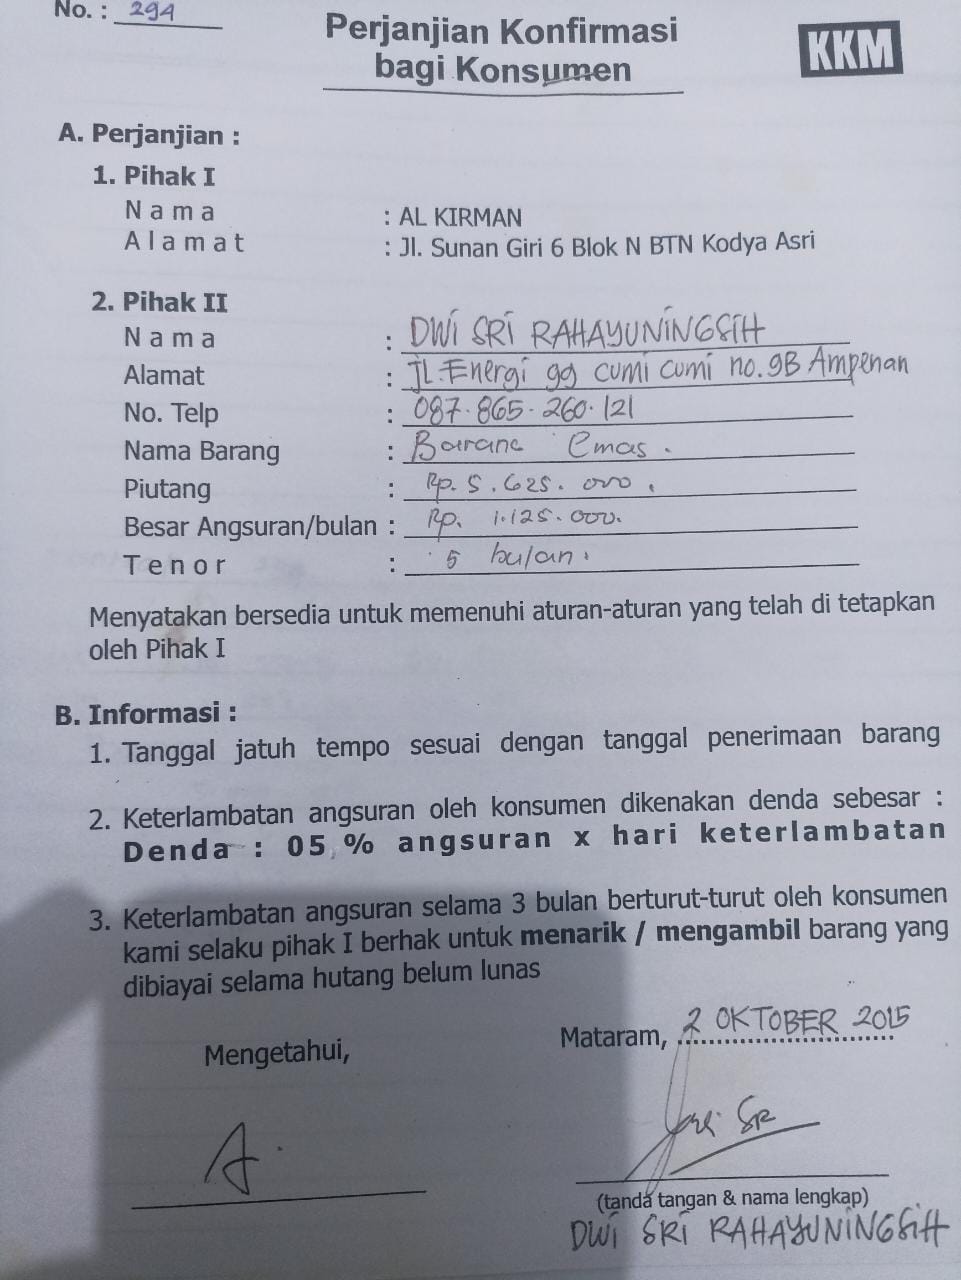 No. : 294
Perjanjian Konfirmasi
bagi Konsumen
KKM
A. Perjanjian :
1. Pihak I
N a m a : AL KIRMAN
A l a m a t : Jl. Sunan Giri 6 Blok N BTN Kodya Asri
2. Pihak II
N a m a : DWI SRI RAHAYUNINGSIH
Alamat : JL. Energi gg cumi cumi no.9B Ampenan
No. Telp : 087.865.260.121
Nama Barang : Barang Emas.
Piutang : Rp. 5.625.000.
Besar Angsuran/bulan : Rp. 1.125.000.
T e n o r : 5 bulan.
Menyatakan bersedia untuk memenuhi aturan-aturan yang telah di tetapkan
oleh Pihak I
B. Informasi :
1. Tanggal jatuh tempo sesuai dengan tanggal penerimaan barang
2. Keterlambatan angsuran oleh konsumen dikenakan denda sebesar :
Denda : 05 % angsuran x hari keterlambatan
3. Keterlambatan angsuran selama 3 bulan berturut-turut oleh konsumen
kami selaku pihak I berhak untuk menarik / mengambil barang yang
dibiayai selama hutang belum lunas
Mataram, 2 OKTOBER 2015
Mengetahui,
(tanda tangan & nama lengkap)
DWI SRI RAHAYUNINGSIH